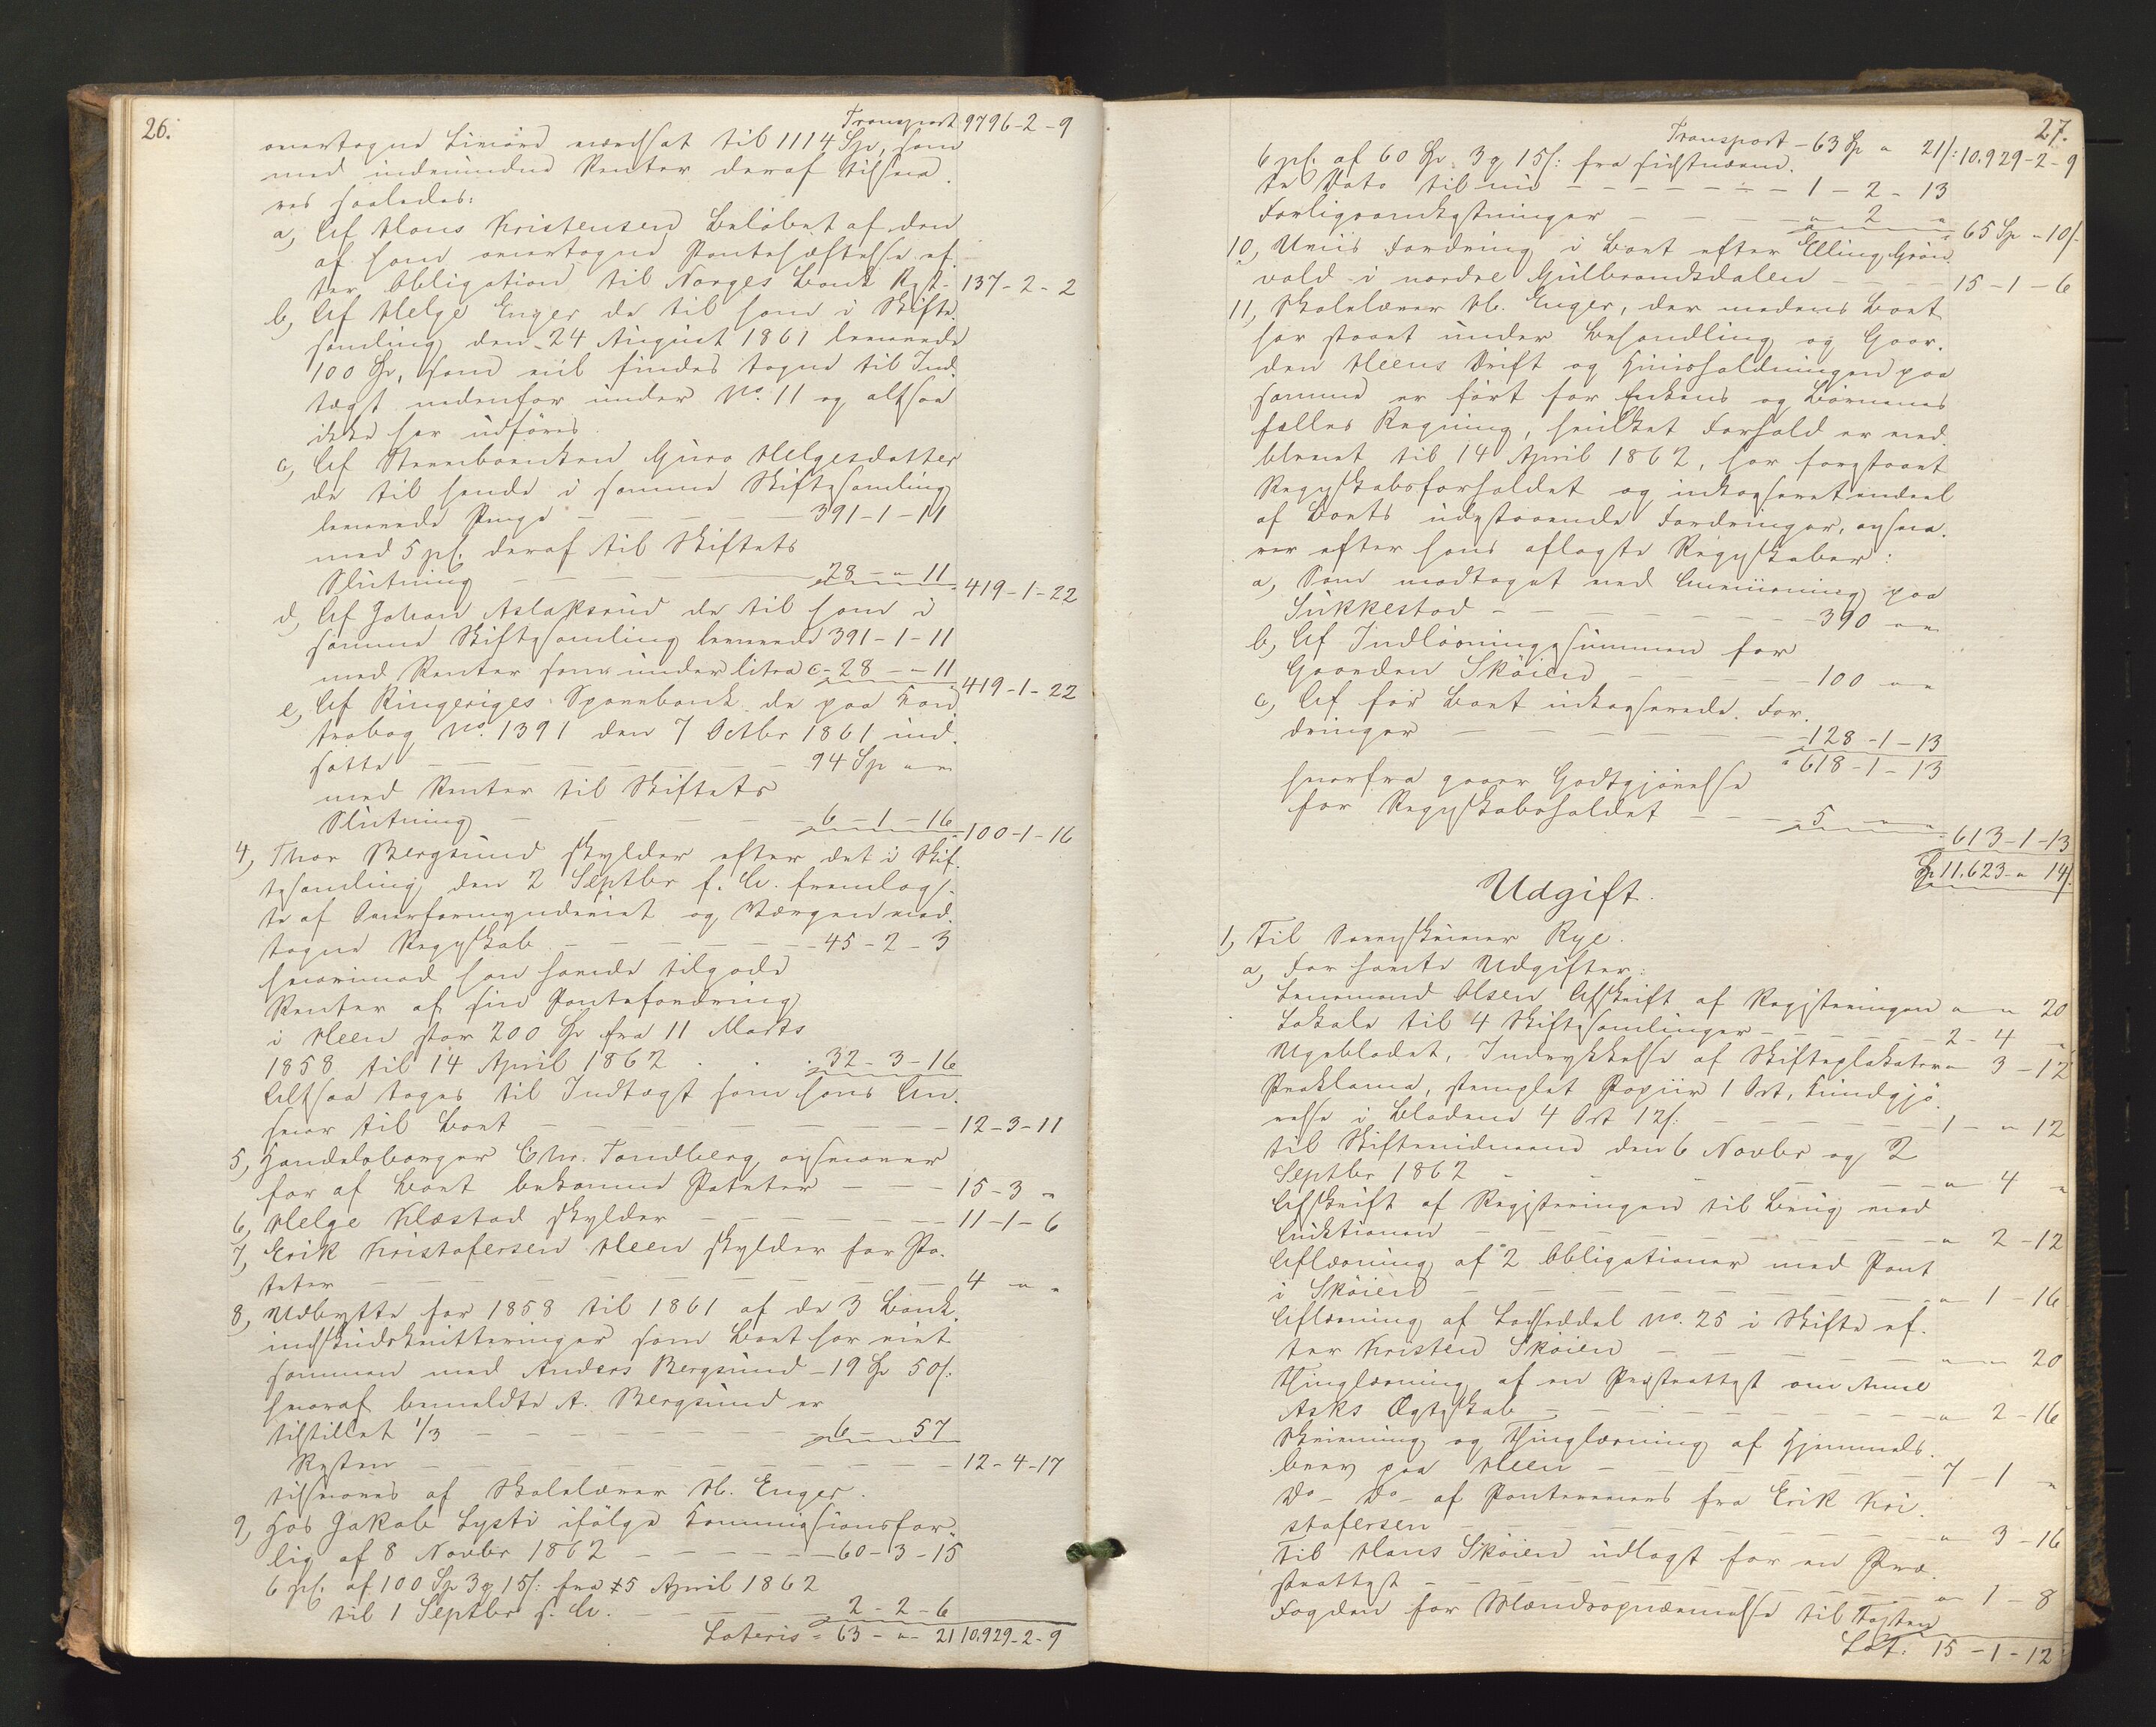 26.
Transport 9796-2-9
overtagne Livöre værdsat til 1114 Sp, som
med indvundne Renter deraf tilsva-
res saaledes:
a, Af Hans Kristensen Beløbet af den
af ham overtagne Pantehæftelse ef-
ter Obligation til Norges Bank Rest- 137-2-2
b, Af Helge Enger de til ham i Skifte-
samling den 24 August 1861 leverede
100 Sp, som vil findes tagne til Ind-
tægt nedenfor under No. 11 og altsaa
ikke her udføres.
c, Af Stervboenken Guro Helgesdatter
de til hende i samme Skiftesamling
leverede Penge - - - 391-1-11
med 5 pC. deraf til Skiftets
Slutning - - - 28 - " 11 419-1-22
d, Af Johan Aslaksrud de til ham i
samme Skiftesamling leverede 391-1-11
med Renter som under litra c - 28 - " - 11 419-1-22
e, Af Ringeriges Sparebank de paa Kon-
trabog No. 1391 den 7 Octbr 1861 ind-
satte - - - 94 Sp " "
med Renter til Skiftets
Slutning - - - 6 - 1 - 16 100-1-16
4, Thor Bergsund skylder efter det i Skif-
tesamling den 2 Septbr f. A. fremlag-
te af Overformynderiet og Værgen ved-
tagne Regnskab - - - 45-2-3
hvorimod han havde tilgode
Renter af sin Pantefordring
i Heen stor 200 Sp fra 11 Marts
1858 til 14 April 1862 . . 32-3-16
Altsaa tages til Indtægt som hans An-
svar til Boet - - - 12-3-11
5, Handelsborger Chr. Tandberg ansvarer
for af Boet bekomne Poteter - - - 15-3 "
6, Helge Klæstad skylder - - - 11-1-6
7, Erik Kristofersen Heen skylder for Po-
teter - - - 4 " "
8, Udbytte for 1858 til 1861 af de 3 Bank-
indskudskvitteringer som Boet har eiet
sammen med Anders Bergsund - 19 Sp 50 s:
hvoraf bemeldte A. Bergsund er
tilstillet 1/3 - - - 6 - 57
Resten - - - 12-4-17
tilsvares af Skolelærer H. Enger.
9, Hos Jakob Lysti ifølge Kommissionsfor-
lig af 8 Novbr 1862 - - - 60-3-15
6 pC. af 100 Sp 3 Ort 15 s: fra 15 April 1862
til 1 Septbr s. A. - - - 2-2-6
Lateris - 63 - " - 21 10,929-2-9
27.
Transport - 63 Sp " 21 s: 10.929-2-9
6 pC. af 60 Sp 3 Ort 15 s: fra sidstnævn-
te Dato til nu - - - 1-2-13
Forligsomkostninger - - - " 2 " 65 Sp " 10 s
10, Unüs Fordring i Boet efter Elling Grön-
vold i nordre Gulbrandsdalen - - - 15-1-6
11, Skolelærer H. Enger, der medens Boet
har staaet under Behandling og Gaar-
den Heens Drift og Huusholdningen paa
samme er ført for Enkens og Börnenes
fælles Regning, hvilket Forhold er ved-
blevet til 14 April 1862, har forestaaet
Regnskabsforholdet og inkasseret endeel
af Boets udestaaende Fordringer, ansva-
rer efter hans aflagte Regnskaber:
a, Som modtaget ved Anviisning paa
Sukkestad - - - 390 " "
b, Af Indløsningssummen for
Gaarden Skøien - - - 100 " "
c, Af for Boet inkasserede For-
dringer - - - 128-1-13
618-1-13
hvorfra gaaer Godtgjørelse
for Regnskabsholdet - - - 5 " " 613-1-13
Sp 11,623 - " 14 s.
Udgift.
1, Til Sorenskriver Rye.
a, For havte Udgifter:
Lensmand Olsen Afskrift af Registeringen " " 20
Lokale til 4 Skiftesamlinger - - - 2-4 "
Ugebladet, Indrykkelse af Skifteplakaten " 3-12
Proklama, stemplet Papiir 1 Ort, Kundgjø-
relse i Bladene 4 Ort 12 s: - - - 1 - " 12
til Skiftevidnerne den 6 Novbr og 2
Septbr 1862 - - - " 4 "
Afskrift af Registeringen til Brug ved
Auktionen - - - " 2-12
Aflæsning af 2 Obligationer med Pant
i Skøien - - - " 1-16
Aflæsning af Lodseddel No. 25 i Skifte ef-
ter Kristen Skøien - - - " " 20
Thinglæsning af en Præsteattest om Anne
Asks Ægteskab - - - " 2-16
Skrivning og Thinglæsning af Hjemmels-
brev paa Heen - - - 7-1 "
Do - Do - af Pantebrev fra Erik Kri-
stofersen - - - " 3-16
Til Hans Skøien udlagt for en Præ-
steattest - - - " 1-8
Fogden for Mændsopnævnelse til Taxten
Lat: 15-1-12